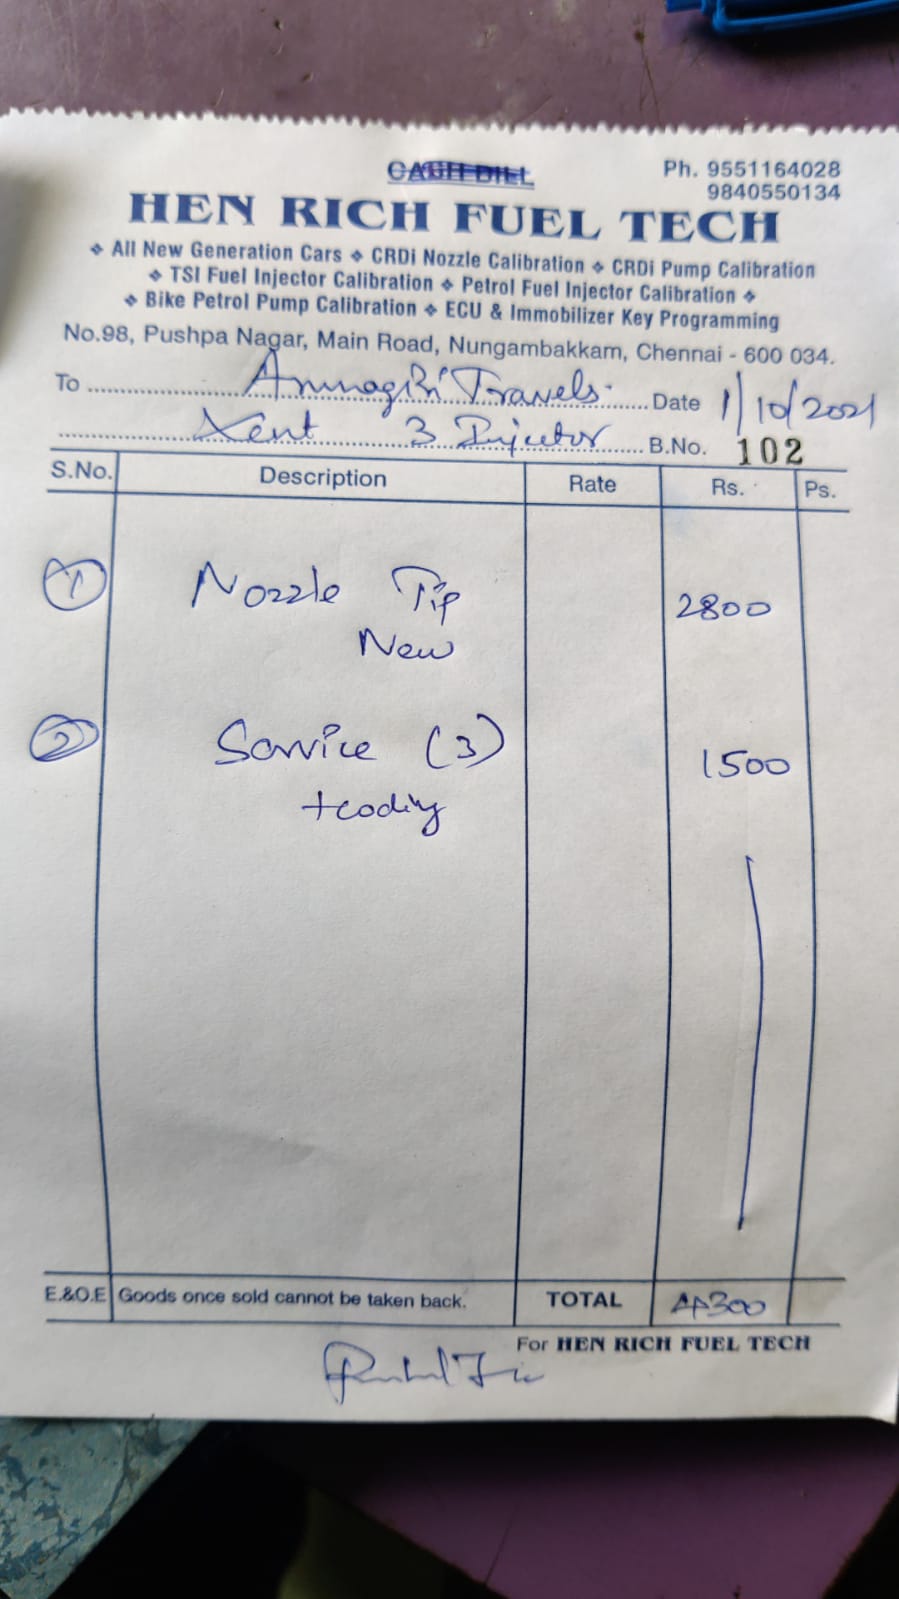 CASH BILL
Ph. 9551164028
9840550134
HEN RICH FUEL TECH
❖ All New Generation Cars ❖ CRDi Nozzle Calibration ❖ CRDi Pump Calibration
❖ TSI Fuel Injector Calibration ❖ Petrol Fuel Injector Calibration ❖
❖ Bike Petrol Pump Calibration ❖ ECU & Immobilizer Key Programming
No.98, Pushpa Nagar, Main Road, Nungambakkam, Chennai - 600 034.
To Travels Date 1/10/2021
Xent 3 Injector B.No. 102
S.No. Description Rate Rs. Ps.
1 Nozzle Tip 2800
New
2 Service (3) 1500
+coding
E.&O.E Goods once sold cannot be taken back. TOTAL 4300
For HEN RICH FUEL TECH